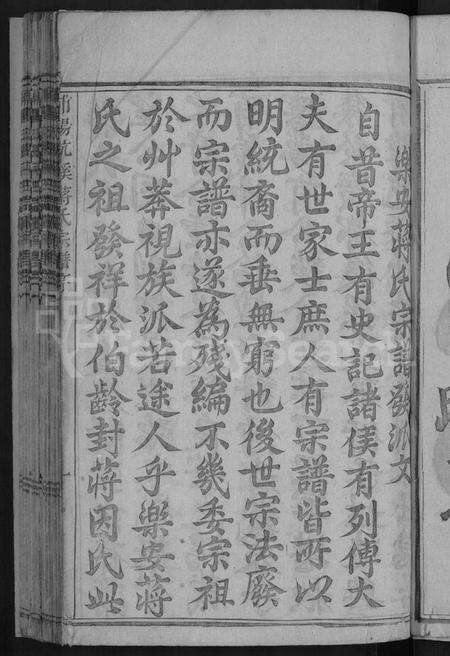 樂安蔣氏宗譜發派文
自昔帝王有史記諸侯有列傳大
夫有世家士庶人有宗譜皆所以
明統裔而垂無窮也後世宗法廢
而宗譜亦遂為殘編不幾委宗祖
於艸莽視族派若途人乎樂安蔣
氏之祖發祥於伯齡封蔣因氏此